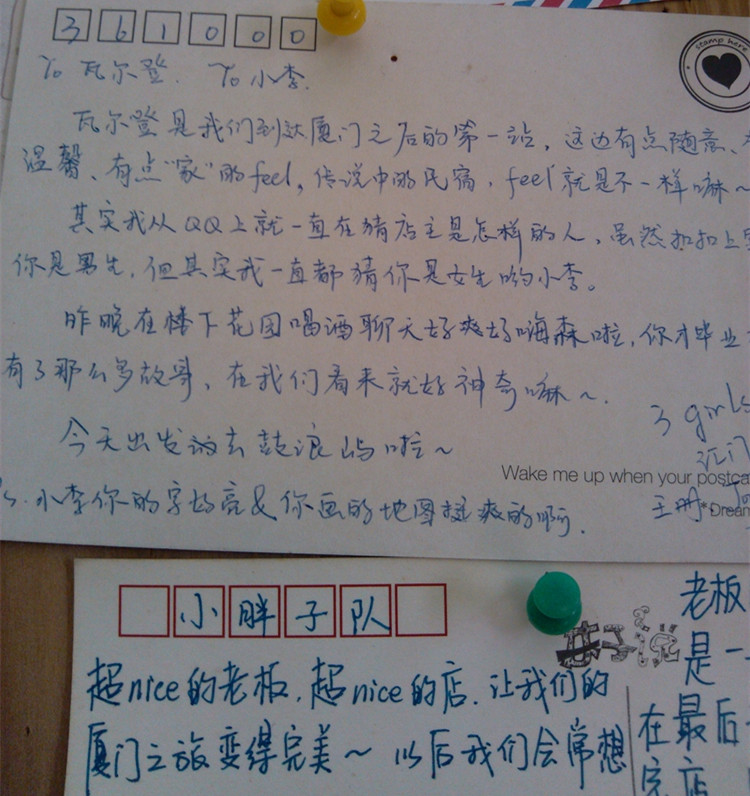 361000
stamp here
To 瓦尔登. To 小李.
瓦尔登是我们到达厦门之后的第一站，这边有点随意、
温馨、有点“家”的feel，传说中的民宿，feel就是不一样嘛~
其实我从QQ上就一直在猜店主是怎样的人，虽然扣扣上
你是男生，但其实我一直都猜你是女生哟小李。
昨晚在楼下花园喝酒聊天好爽好嗨森啦，你才毕业
有了那么多故哥、在我们看来就好神奇嘛~.
今天出发去鼓浪屿啦~
3 girls
Wake me up when your postca
小李你的字好亮&你画的地图挺爽的啊.
*Dream
小胖子队
超nice的老板，超nice的店，让我们的
厦门之旅变得完美~ 以后我们会常想
老板
是一
在最后
完店